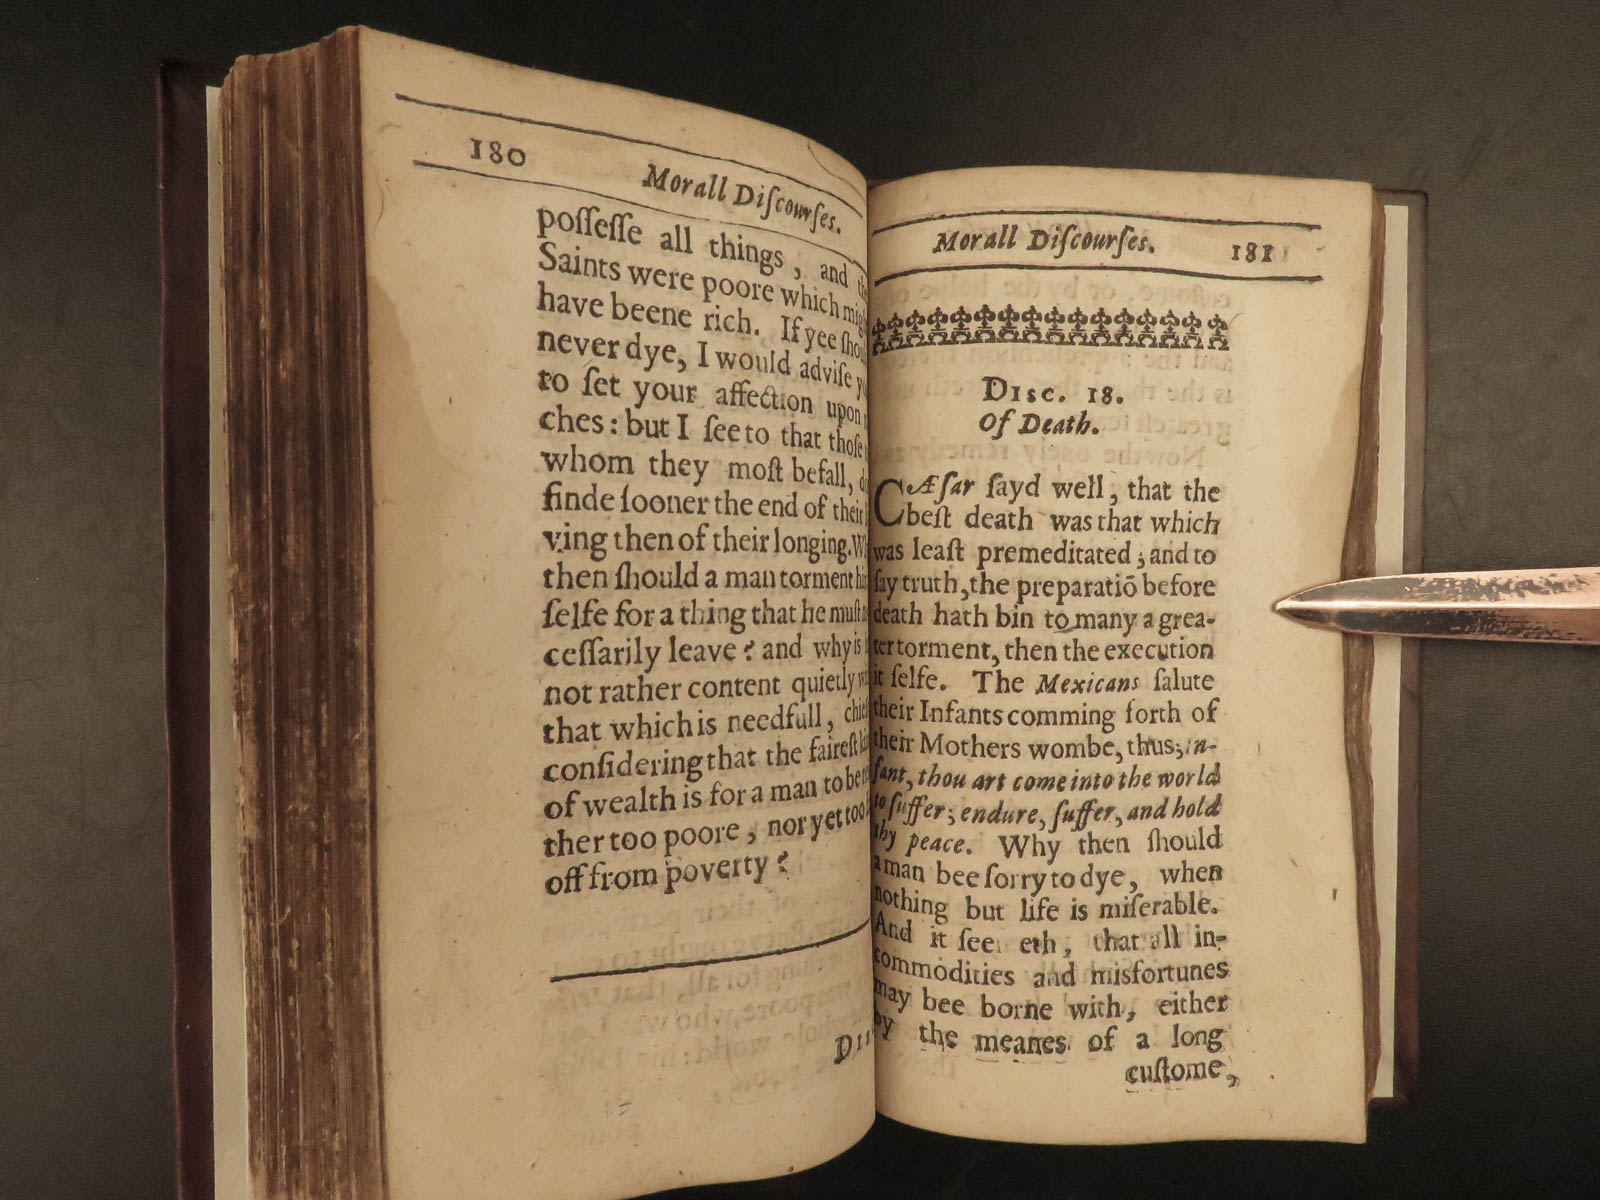 180
Morall Diſcourſes.
poſſeſſe all things, and
Saints were poore which
have beene rich. If yee
never dye, I would adviſe
to ſet your affection upon
ches: but I ſee to that thoſe
whom they moſt befall,
finde ſooner the end of their
ving then of their longing.
then ſhould a man torment
ſelfe for a thing that he muſt
ceſſarily leave? and why is
not rather content quietly
that which is needfull,
conſidering that the faireſt
of wealth is for a man to be
ther too poore, nor yet too
off from poverty?
Morall Diſcourſes. 181
Disc. 18.
Of Death.
CÆſar ſayd well, that the
beſt death was that which
was leaſt premeditated; and to
ſay truth, the preparatiō before
death hath bin to many a grea-
ter torment, then the execution
it ſelfe. The Mexicans ſalute
their Infants comming forth of
their Mothers wombe, thus; in-
fant, thou art come into the world
to ſuffer; endure, ſuffer, and hold
thy peace. Why then ſhould
a man bee ſorry to dye, when
nothing but life is miſerable.
And it ſee eth, that all in-
commodities and misfortunes
may bee borne with, either
by the meanes of a long
cuſtome,